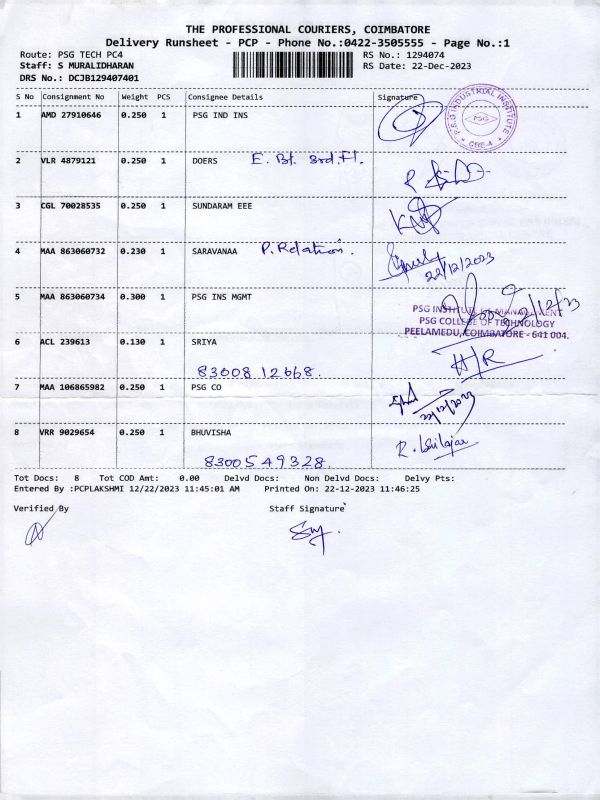 THE PROFESSIONAL COURIERS, COIMBATORE
Delivery Runsheet - PCP - Phone No.:0422-3505555 - Page No.:1
Route: PSG TECH PC4 RS No.: 1294074
Staff: S MURALIDHARAN RS Date: 22-Dec-2023
DRS No.: DCJB129407401
S No Consignment No Weight PCS Consignee Details Signature
1 AMD 27910646 0.250 1 PSG IND INS
P.S.G INDUSTRIAL INSTITUTE
PSG
CBE-4
2 VLR 4879121 0.250 1 DOERS E. Bt. 3rd.Fl.
3 CGL 70028535 0.250 1 SUNDARAM EEE
4 MAA 863060732 0.230 1 SARAVANAA P. Relation.
22/12/2023
5 MAA 863060734 0.300 1 PSG INS MGMT
22/12/23
PSG INSTITUTE OF MANAGEMENT
PSG COLLEGE OF TECHNOLOGY
PEELAMEDU, COIMBATORE - 641 004.
6 ACL 239613 0.130 1 SRIYA
H/R
8300812668.
7 MAA 106865982 0.250 1 PSG CO
8 VRR 9029654 0.250 1 BHUVISHA
8300549328.
Tot Docs: 8 Tot COD Amt: 0.00 Delvd Docs: Non Delvd Docs: Delvy Pts:
Entered By :PCPLAKSHMI 12/22/2023 11:45:01 AM Printed On: 22-12-2023 11:46:25
Verified By Staff Signature